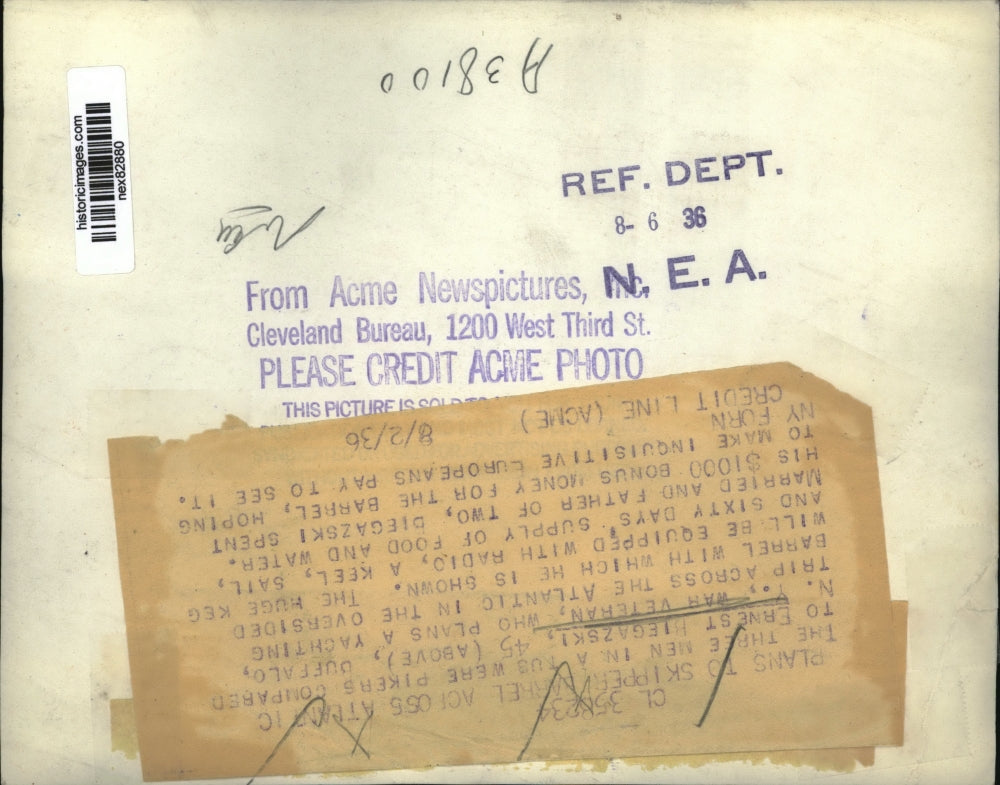 A38100
historicimages.com
nex82880
REF. DEPT.
8- 6 36
N. E. A.
From Acme Newspictures, Inc.
Cleveland Bureau, 1200 West Third St.
PLEASE CREDIT ACME PHOTO
THIS PICTURE IS SOLD TO
CL 358234
PLANS TO SKIPPER BARREL ACROSS ATLANTIC
THE THREE MEN IN A TUB WERE PIKERS COMPARED
TO ERNEST BIEGAZSKI, 45 (ABOVE), BUFFALO,
N. Y., WAR VETERAN, WHO PLANS A YACHTING
TRIP ACROSS THE ATLANTIC IN THE OVERSIDED
BARREL WITH WHICH HE IS SHOWN. THE HUGE KEG
WILL BE EQUIPPED WITH RADIO, A KEEL, SAIL,
AND SIXTY DAYS, SUPPLY OF FOOD AND WATER.
MARRIED AND FATHER OF TWO, BIEGAZSKI SPENT
HIS $1000 BONUS MONEY FOR THE BARREL, HOPING
TO MAKE INQUISITIVE EUROPEANS PAY TO SEE IT.
NY FORN
CREDIT LINE (ACME) 8/2/36